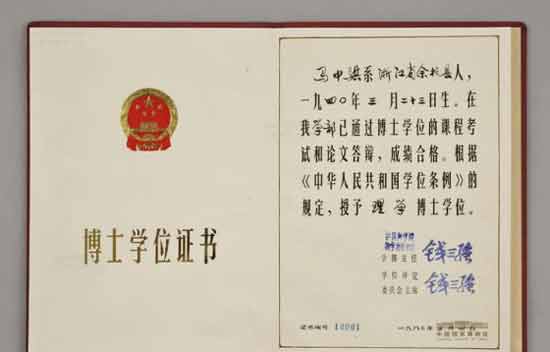 博士学位证书
马中骐系浙江省余杭县人，
一九四〇年三月二十三日生。在
我学部已通过博士学位的课程考
试和论文答辩，成绩合格。根据
《中华人民共和国学位条例》的
规定，授予理学博士学位。
学部主任 钱三强
学位评定
委员会主席 钱三强
证书编号 10001